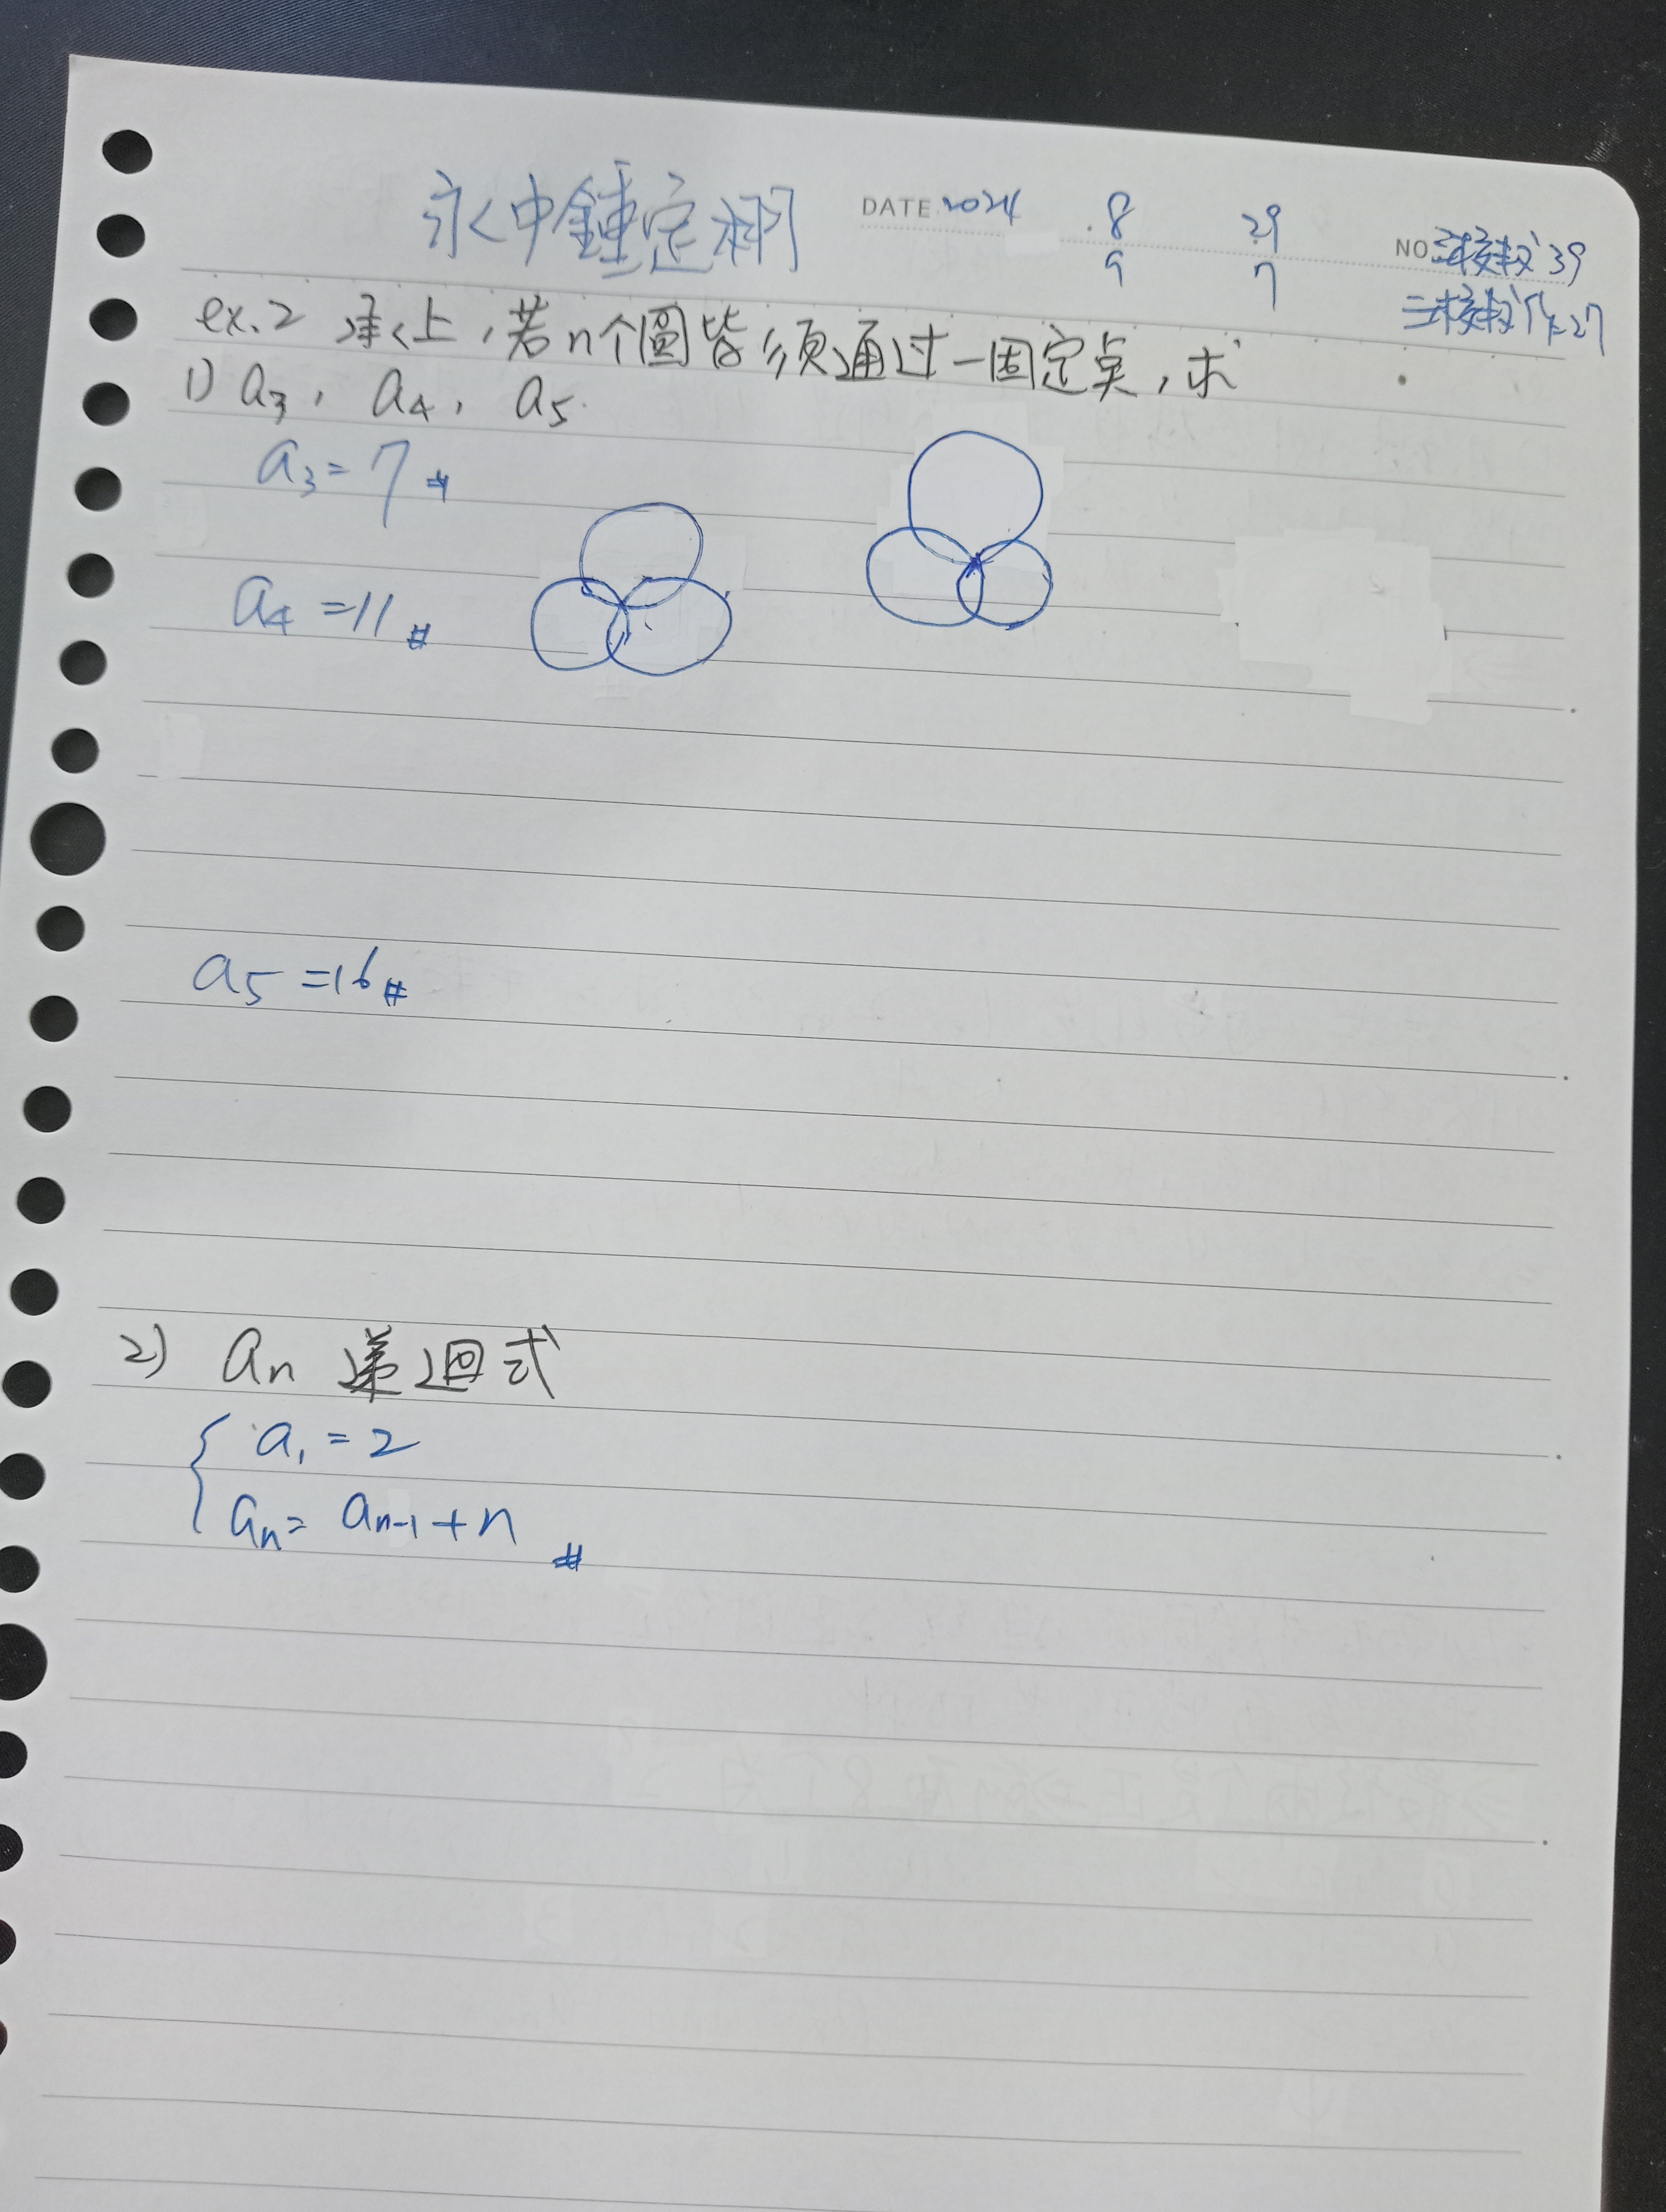 永中鍾定栩 DATE 2024 .8 29 NO 三校教39
9 7 三校教作27
ex.2 承上,若n个圓皆須通过一固定点,求
1) a3, a4, a5.
a3=7 #
a4=11 #
a5=16 #
2) an 遞迴式
{ a1=2
an=an-1+n #